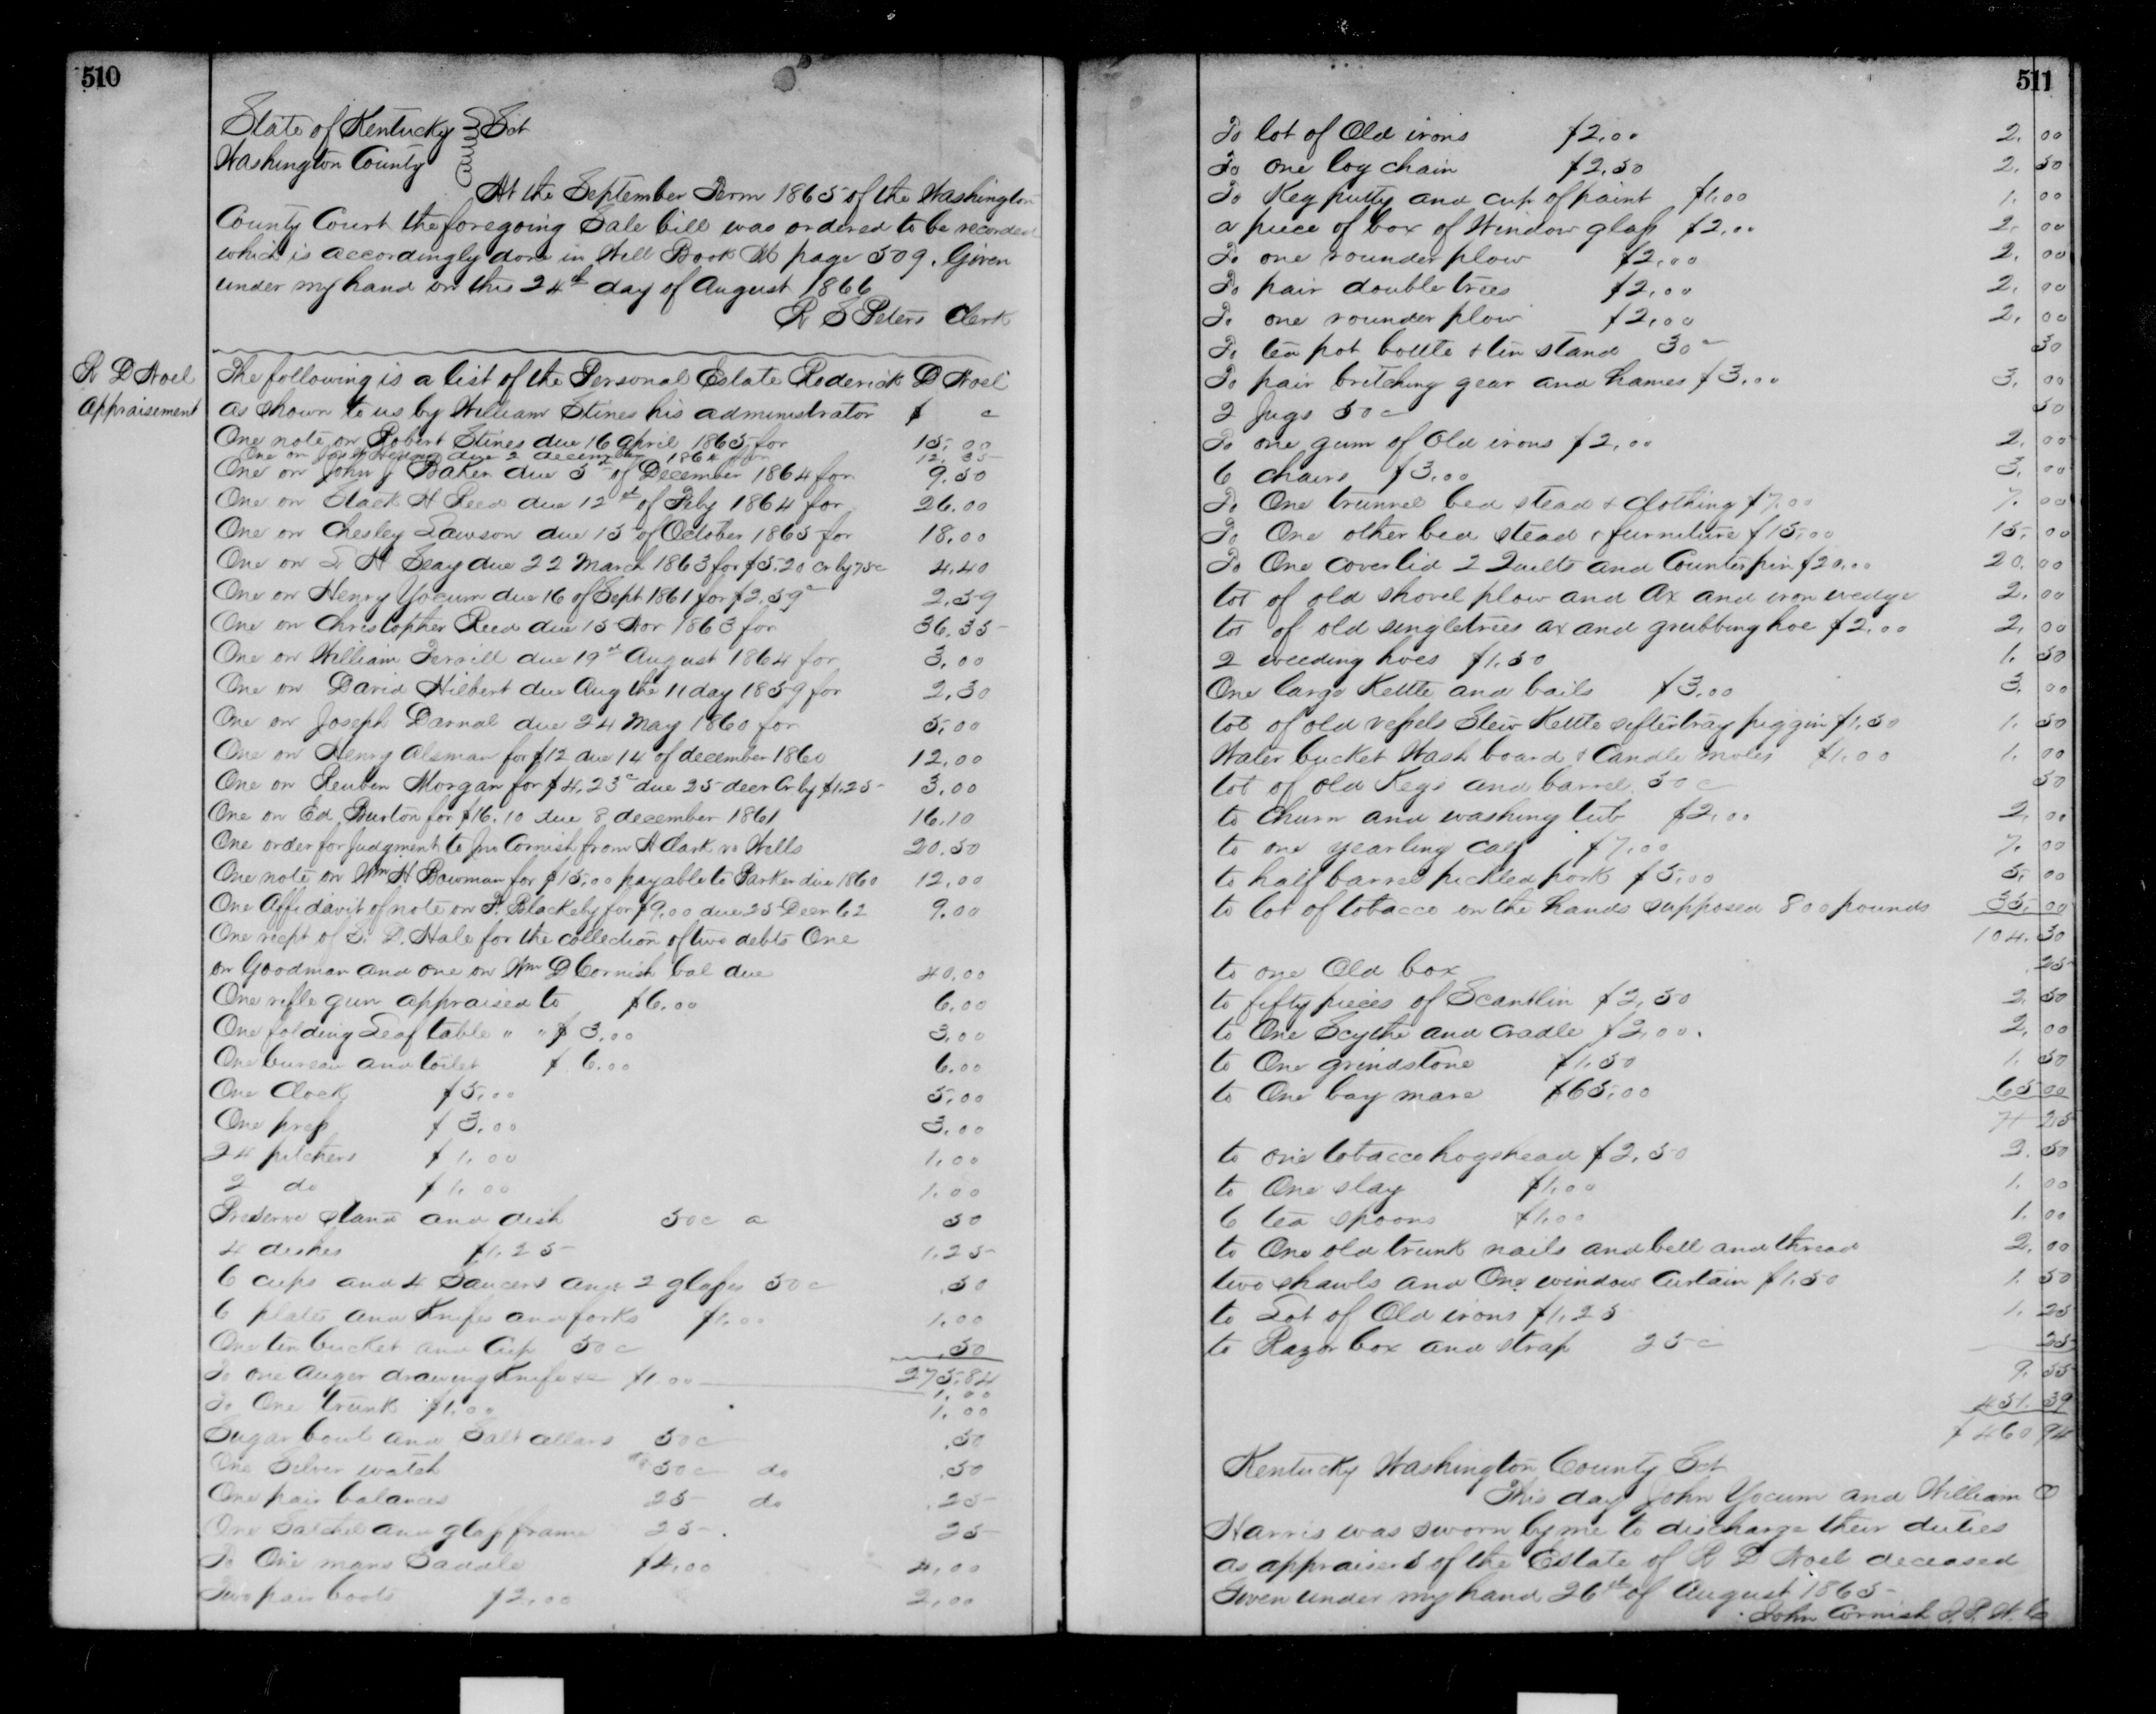 510
State of Kentucky Sct
Washington County
At the September Term 1865 of the Washington
County Court the foregoing Sale bill was ordered to be recorded
which is accordingly done in Will Book page 509. Given
under my hand on this 24th day of August 1866
R S Peters Clerk
R D Noel
Appraisement
The following is a list of the Personal Estate Roderick D Noel
as shown to us by William Stines his administrator $ c
One note on Robert Stines due 16 April 1865 for 15.00
One on due 2 december 186 for 12.35
One on John J Baker due 5th of December 1864 for 9.50
One on Stack H Reed due 12th of Feby 1864 for 26.00
One on Chesley Lawson due 15 of October 1865 for 18.00
One on S H Seay due 22 March 1863 for $5.20 cr by 75c 4.40
One on Henry Yocum due 16 of Sept 1861 for $2.59c 2.59
One on Christopher Reed due 15 Nov 1863 for 36.35
One on William Terrill due 19th August 1864 for 3.00
One on David Hilbert due Aug the 11 day 1859 for 2.30
One on Joseph Darnal due 24 May 1860 for 5.00
One on Henry Alsman for $12 due 14 of december 1860 12.00
One on Reuben Morgan for $4.23c due 25 decr Cr by $1.25 3.00
One on Ed Burton for $16.10 due 8 december 1861 16.10
One order for Judgment to Jno Cornish from H Clark vs Wells 20.50
One note on Wm H Bowman for $15.00 payable to Parker due 1860 12.00
One Affidavit of note on P. Blackeby for $9.00 due 25 Decr 62 9.00
One recpt of S. D. Hale for the collection of two debts One
on Goodman and one on Wm D Cornish bal due 40.00
One rifle gun appraised to $6.00 6.00
One folding Leaf table " " $3.00 3.00
One bureau and toilet $6.00 6.00
One Clock $5.00 5.00
One press $3.00 3.00
24 pitchers $1.00 1.00
2 do $1.00 1.00
Preserve stand and dish 50c a 50
4 dishes $1.25 1.25
6 cups and 4 Saucers and 2 glasses 50c .50
6 plates and Knifes and forks $1.00 1.00
One tin bucket and Cup 50c .50
To one Auger drawing Knife &c $1.00 275.84
1.00
To One trunk $1.00 1.00
Sugar bowl and Salt cellars 50c .50
One Silver watch 50c do .50
One pair balances 25 do .25
One Satchel and glass frame 25 25
To One mans Saddle $4.00 4.00
Two pair boots $2.00 2.00
511
To lot of Old irons $2.00 2.00
To one log chain $2.50 2.50
To Keg putty and cup of paint $1.00 1.00
a piece of box of Window glass $2.00 2.00
To one rounder plow $2.00 2.00
To pair doubletrees $2.00 2.00
To one rounder plow $2.00 2.00
To tea pot bottle & tin stand 30c 30
To pair britching gear and hames $3.00 3.00
2 Jugs 50c 50
To one gum of Old irons $2.00 2.00
6 chairs $3.00 3.00
To One trunnel bed stead & clothing $7.00 7.00
To One other bed stead & furniture $15.00 15.00
To One coverlid 2 Quilts and Counterpin $20.00 20.00
lot of old shovel plow and Ax and iron wedge 2.00
lot of old singletrees ax and grubbing hoe $2.00 2.00
2 weeding hoes $1.50 1.50
One large Kettle and bails $3.00 3.00
lot of old vessels Stew Kettle sifter tray piggin $1.50 1.50
Water bucket Wash board & Candle moles $1.00 1.00
lot of old Kegs and barrel 50c 50
to Churn and washing tub $2.00 2.00
to one yearling calf $7.00 7.00
to half barrel pickled pork $5.00 5.00
to lot of tobacco on the hands supposed 800 pounds 35.00
104.30
to one Old box .25
to fifty pieces of Scantlin $2.50 2.50
to One Scythe and cradle $2.00. 2.00
to One grindstone $1.50 1.50
to One bay mare $65.00 65.00
71 25
to one tobacco hogshead $2.50 2.50
to One slay $1.00 1.00
6 tea spoons $1.00 1.00
to One old trunk nails and bell and thread 2.00
two shawls and One window Curtain $1.50 1.50
to Lot of Old irons $1.25 1.25
to Razor box and strap 25c 25
9.55
451.39
$460 94
Kentucky Washington County Sct
This day John Yocum and William O
Harris was sworn by me to discharge their duties
as appraisers of the Estate of R D Noel deceased
Given under my hand 26th of August 1865
John Cornish J.P.W.C